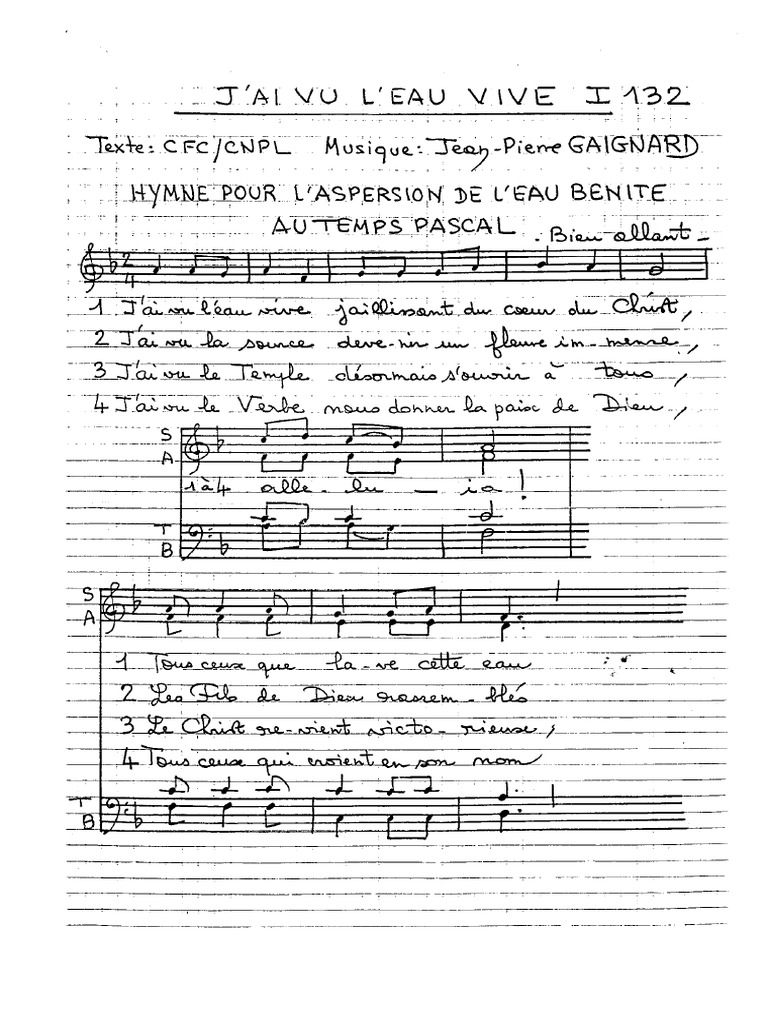 J'AI VU L'EAU VIVE I 132
Texte: CFC/CNPL Musique: Jean-Pierre GAIGNARD
HYMNE POUR L'ASPERSION DE L'EAU BENITE
AU TEMPS PASCAL
. Bien allant -
2
4
1 J'ai vu l'eau vive jaillissant du coeur du Christ,
2 J'ai vu la source deve-nir un fleuve im-mense,
3 J'ai vu le Temple désormais s'ouvrir à tous,
4 J'ai vu le Verbe nous donner la paix de Dieu,
S
A
1 à 4 alle-lu - ia !
T
B
S
A
1 Tous ceux que la-ve cette eau
2 Les Fils de Dieu rassem-blés
3 Le Christ re-vient victo-rieux,
4 Tous ceux qui croient en son nom
T
B